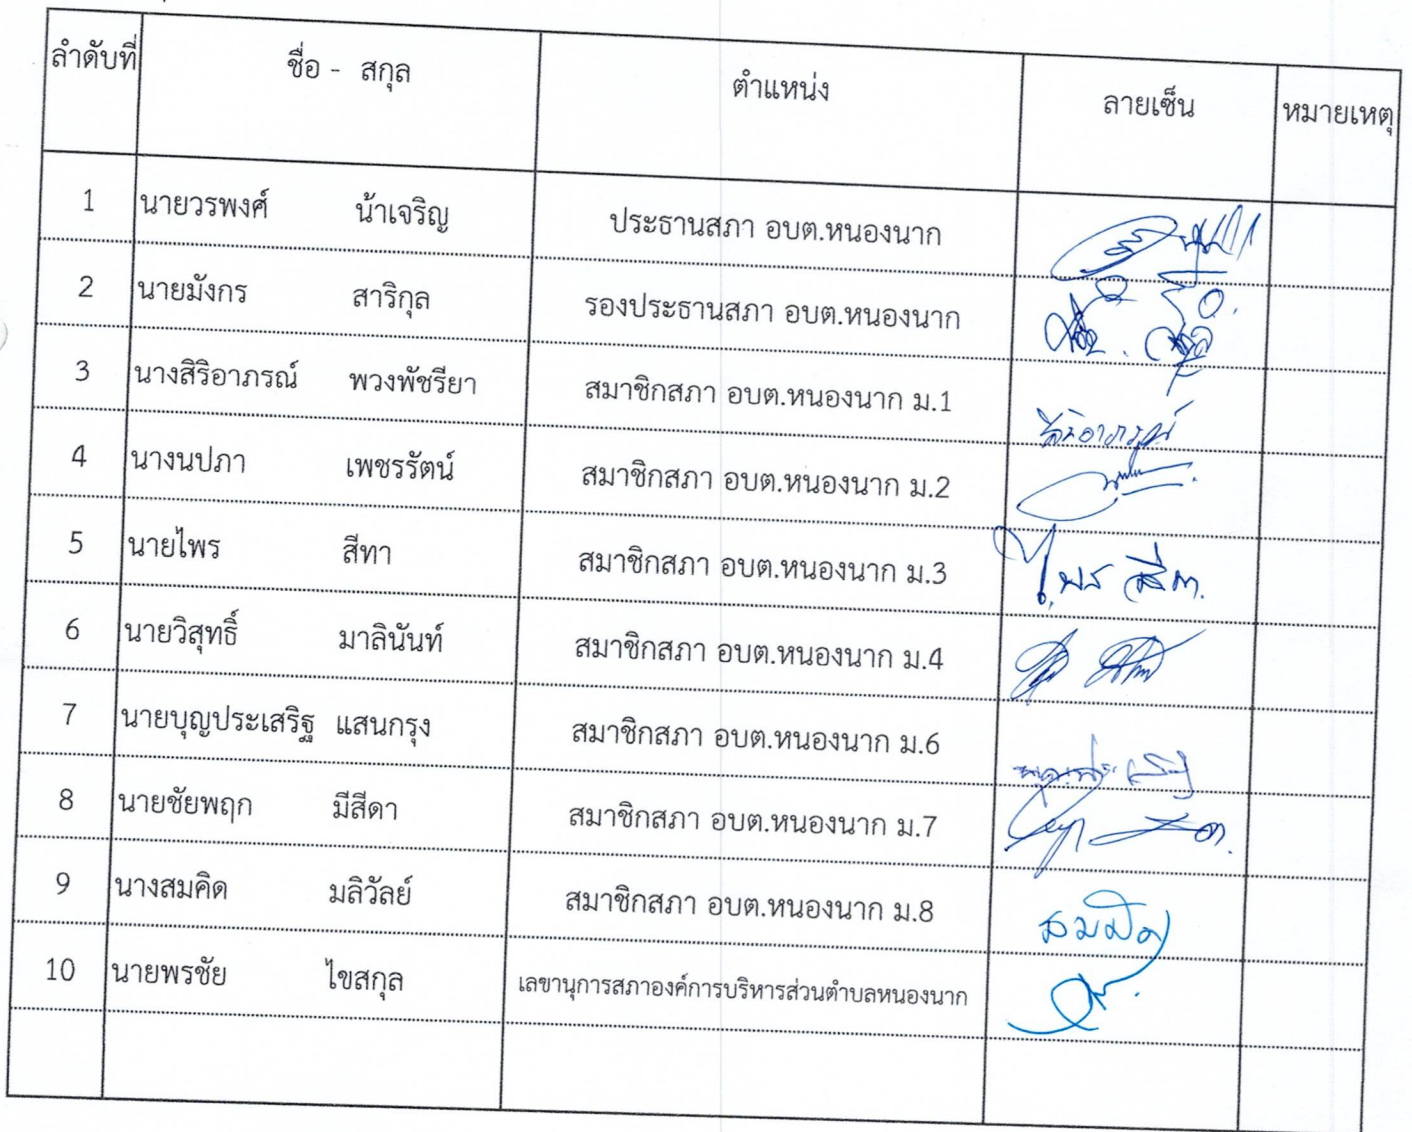 ลำดับที่ ชื่อ - สกุล ตำแหน่ง ลายเซ็น หมายเหตุ
1 นายวรพงศ์ น้าเจริญ ประธานสภา อบต.หนองนาก
2 นายมังกร สาริกุล รองประธานสภา อบต.หนองนาก
3 นางสิริอาภรณ์ พวงพัชรียา สมาชิกสภา อบต.หนองนาก ม.1 สิริอาภรณ์
4 นางนปภา เพชรรัตน์ สมาชิกสภา อบต.หนองนาก ม.2
5 นายไพร สีทา สมาชิกสภา อบต.หนองนาก ม.3 ไพร สีทา
6 นายวิสุทธิ์ มาลินันท์ สมาชิกสภา อบต.หนองนาก ม.4
7 นายบุญประเสริฐ แสนกรุง สมาชิกสภา อบต.หนองนาก ม.6
8 นายชัยพฤก มีสีดา สมาชิกสภา อบต.หนองนาก ม.7
9 นางสมคิด มลิวัลย์ สมาชิกสภา อบต.หนองนาก ม.8 สมคิด
10 นายพรชัย ไขสกุล เลขานุการสภาองค์การบริหารส่วนตำบลหนองนาก